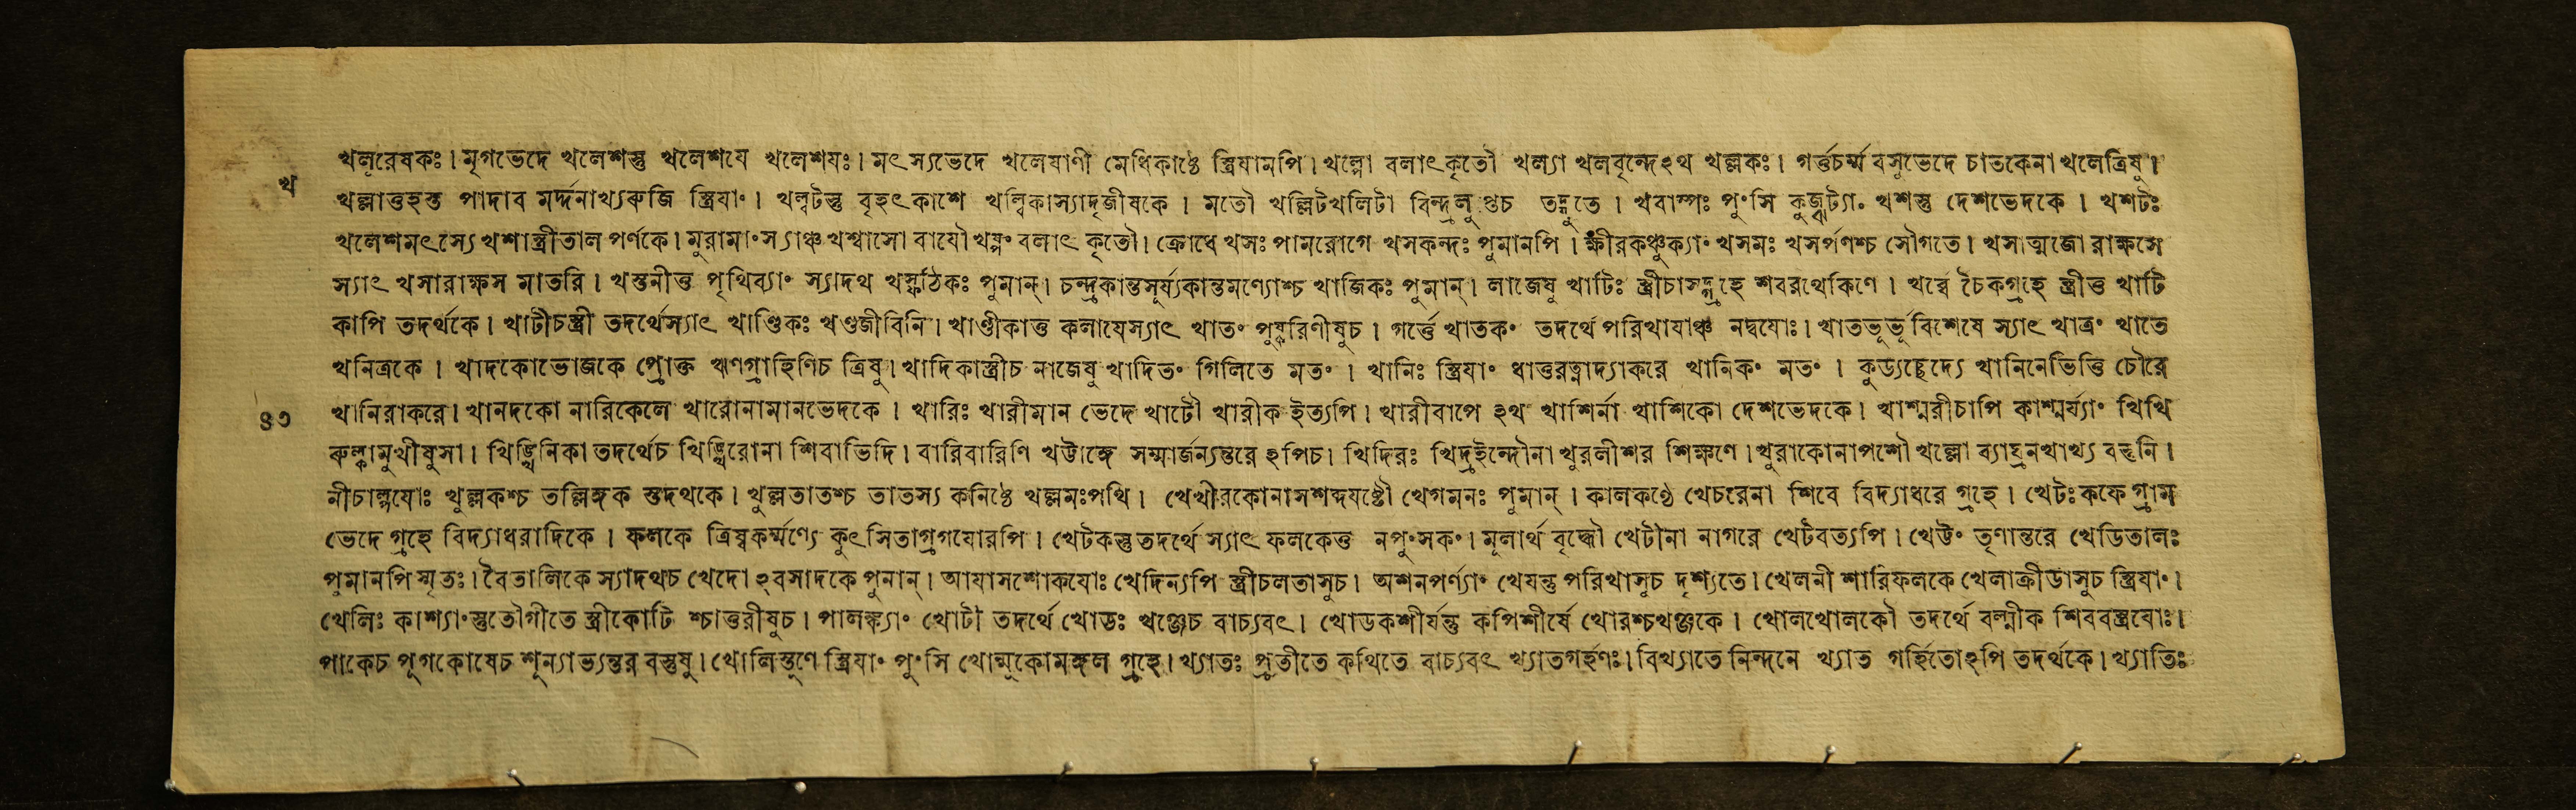 খলূরেষকঃ। মৃগভেদে খলেশস্তু খলেশযে খলেশযঃ। মৎস্যভেদে খলেষাণী মেধিকাষ্ঠে স্ত্রিযামপি। খল্লো বলাৎকৃতৌ খল্যা খলবৃন্দেঽথ খল্লকঃ। গর্ত্তচর্ম্ম বসুভেদে চাতকেনা খলেত্রিষু।
খ
খল্লাত্তহস্ত পাদাব মর্দ্দনাখ্যরুজি স্ত্রিযাং। খল্বটন্তু বৃহৎকাশে খল্বিকাস্যাদৃজীষকে। মতৌ খল্লিটখলিটা তদ্গতে। খবাস্পঃ পুংসি খশস্তু দেশভেদকে। খশটঃ
খলেশমৎস্যে খশাস্ত্রীতাল পর্ণকে। মুরামাংস্যাঞ্চ খশ্বাসো বাযৌ খষ্পং বলাৎ কৃতৌ। ক্রোধে খসঃ পামরোগে খসকন্দঃ পুমানপি। ক্ষীরকঞ্চুক্যাং খসমঃ খসর্পণশ্চ সৌগতে। খসাত্মজো রাক্ষসে
স্যাৎ খসারাক্ষস মাতরি। খস্তনীত্ত পৃথিব্যাং স্যাদথ পুমান্। চন্দ্রকান্তসূর্য্যকান্তমণ্যোশ্চ খাজিকঃ পুমান্। লাজেষু খাটিঃ স্ত্রীচাসদ্গ্রহে শবরথেকিণে। খর্ব্বে চৈকগ্রহে স্ত্রীত্ত খাটি
কাপি তদর্থকে। খাটীচস্ত্রী তদর্থেস্যাৎ খাণ্ডিকঃ খণ্ডজীবিনি। খাণ্ডীকাত্ত কলাযেস্যাৎ খাতং পুষ্করিণীষুচ। গর্ত্তে খাতকং তদর্থে পরিখাযাঞ্চ নদ্বযোঃ। খাতভূর্ভূ বিশেষে স্যাৎ খাত্রং খাতে
খনিত্রকে। খাদকোভোজকে প্রোক্ত ঋণগ্রাহিণিচ ত্রিষু। খাদিকাস্ত্রীচ নাজেষু খাদিতং গিলিতে মতং। খানিঃ স্ত্রিযাং ধাত্তরত্নাদ্যাকরে খানিকং মতং। কুড্যচ্ছেদ্যে খানিনেভিত্তি চৌরে
৪৩
খানিরাকরে। খানদকো নারিকেলে খারোনামানভেদকে। খারিঃ খারীমান ভেদে খাটৌ খারীক ইত্যপি। খারীবাপে ঽথ খাশির্না খাশিকো দেশভেদকে। খাশ্মরীচাপি কাশ্মর্য্যাং খিখি
রুল্কামুখীষুসা। খিঙ্খিনিকা তদর্থেচ খিঙ্খিরোনা শিবাভিদি। বারিবারিণি খট্টাঙ্গে সম্মার্জন্যন্তরে ঽপিচ। খিদিরঃ খিদ্রইন্দৌনা খুরলীশর শিক্ষণে। খুরাকোনাপশৌ খল্লো ব্যাঘ্রনখাখ্য বস্তূনি।
নীচাল্পযোঃ খুল্লকশ্চ তল্লিঙ্গক স্তদথকে। খুল্লতাতশ্চ তাতস্য কনিষ্ঠে খল্লমঃপথি। খেখীরকোনাসশব্দযষ্টৌ খেগমনঃ পুমান্। কালকণ্ঠে খেচরেনা শিবে বিদ্যাধরে গ্রহে। খেটঃ কফে গ্রাম
ভেদে গ্রহে বিদ্যাধরাদিকে। ফলকে ত্রিষ্বকর্ম্মণ্যে কুৎসিতাগ্রগযোরপি। খেটকস্তু তদর্থে স্যাৎ ফলকেত্ত নপুংসকং। মূলার্থ বৃদ্ধৌ খেটীনা নাগরে খেটবত্যপি। খেট্টং তৃণান্তরে খেডিতালঃ
পুমানপি স্মৃতঃ। বৈতালিকে স্যাদথচ খেদো ঽবসাদকে পুনান্। আযাসশোকযোঃ খেদিন্যপি স্ত্রীচলতাসুচ। অশনপর্ণ্যাং খেযন্তু পরিখাসূচ দৃশ্যতে। খেলনী শারিফলকে খেলাক্রীডাসুচ স্ত্রিযাং।
খেলিঃ কাশ্যাংস্তুতৌগীতে স্ত্রীকোটি শ্চাত্তরীষুচ। পালঙ্ক্যাং খোটী তদর্থে খোডঃ খঞ্জেচ বাচ্যবৎ। খোডকশীর্যন্তু কপিশীর্ষে খোরশ্চখঞ্জকে। খোলখোলকৌ তদর্থে বল্মীক শিববস্ত্রবোঃ।
পাকেচ পূগকোষেচ শূন্যাভ্যন্তর বস্তুষু। খোলিস্তুণে স্ত্রিযাং পুংসি খোল্মুকোমঙ্গল গ্রহে। খ্যাতঃ প্রতীতে কথিতে বাচ্যবৎ খ্যাতগর্হণঃ। বিখ্যাতে নিন্দনে খ্যাত গর্হিতোঽপি তদর্থকে। খ্যাতিঃ